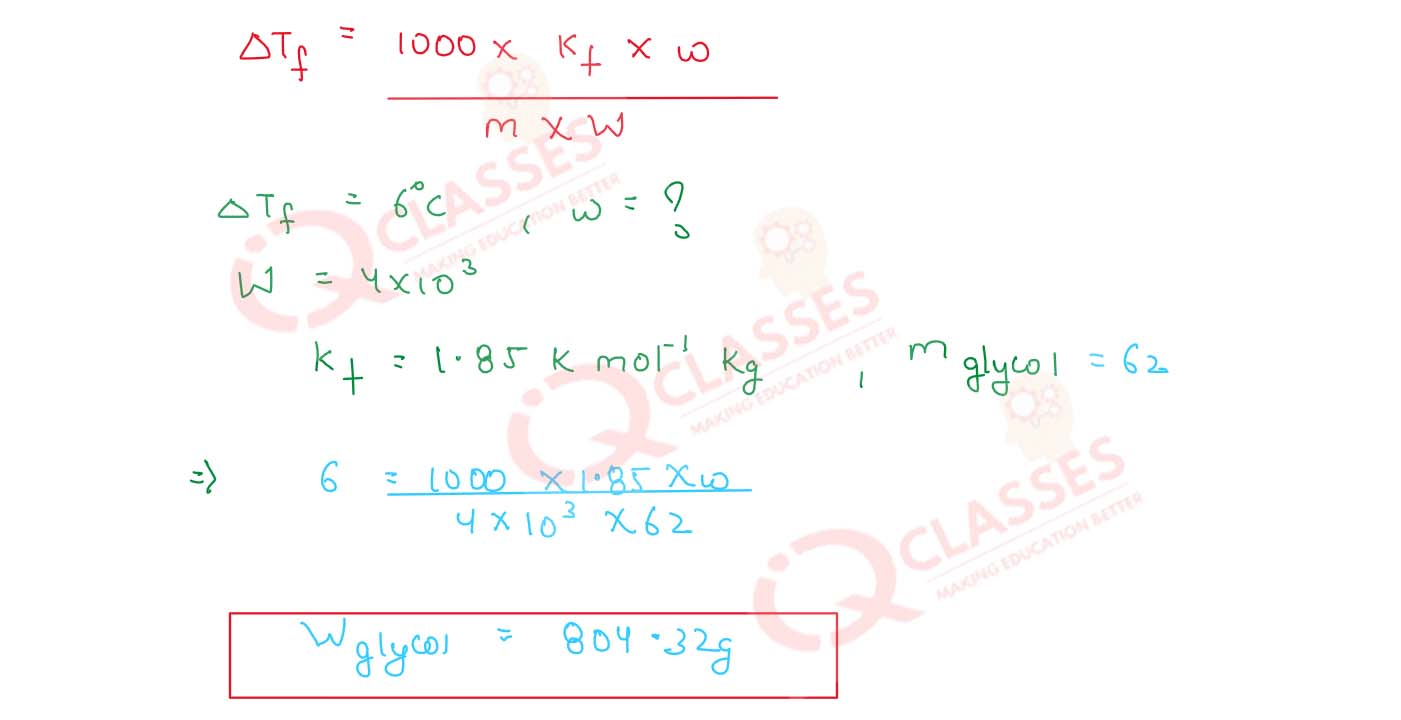 ΔTf = 1000 x Kf x w
m x W
ΔTf = 6°C , w = ?
W = 4x10³
Kf = 1.85 K mol⁻¹ Kg , m glycol = 62
=> 6 = 1000 x 1.85 x w
4 x 10³ x 62
W glycol = 804.32g
IQ CLASSES
MAKING EDUCATION BETTER
IQ CLASSES
MAKING EDUCATION BETTER
IQ CLASSES
MAKING EDUCATION BETTER